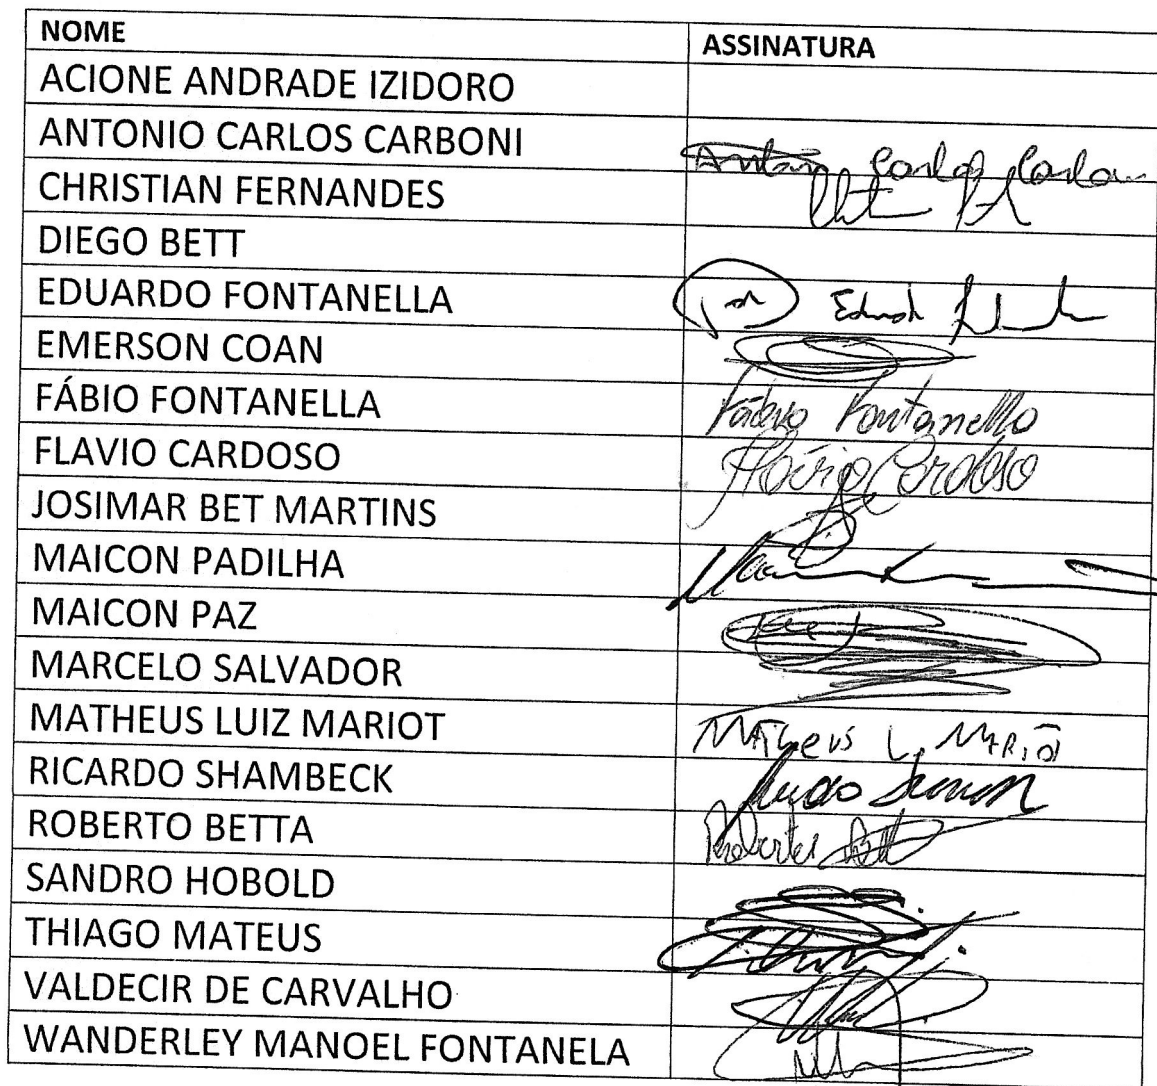 NOME ASSINATURA
ACIONE ANDRADE IZIDORO
ANTONIO CARLOS CARBONI Antônio Carlos
CHRISTIAN FERNANDES
DIEGO BETT
EDUARDO FONTANELLA
EMERSON COAN
FÁBIO FONTANELLA Fábio Fontanella
FLAVIO CARDOSO Flávio Cardoso
JOSIMAR BET MARTINS
MAICON PADILHA
MAICON PAZ
MARCELO SALVADOR
MATHEUS LUIZ MARIOT MATHEUS L. MARIOT
RICARDO SHAMBECK
ROBERTO BETTA Roberto
SANDRO HOBOLD
THIAGO MATEUS
VALDECIR DE CARVALHO
WANDERLEY MANOEL FONTANELA